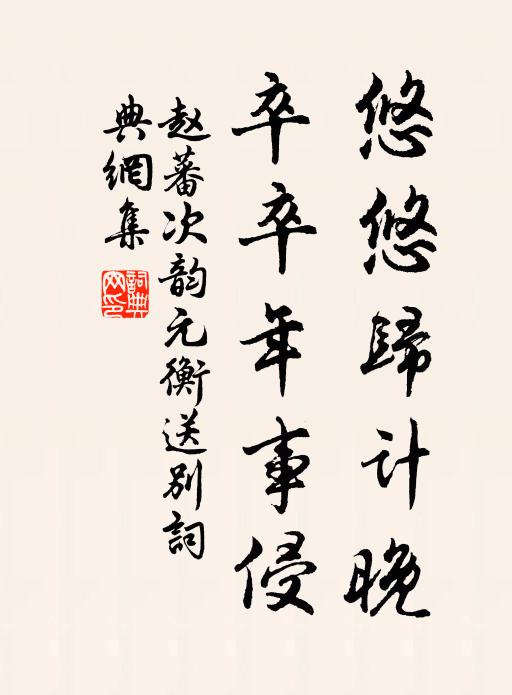 悠悠歸計晚
卒卒年事侵
赵蕃次韵元衡送别詞
典網集
詞典網印